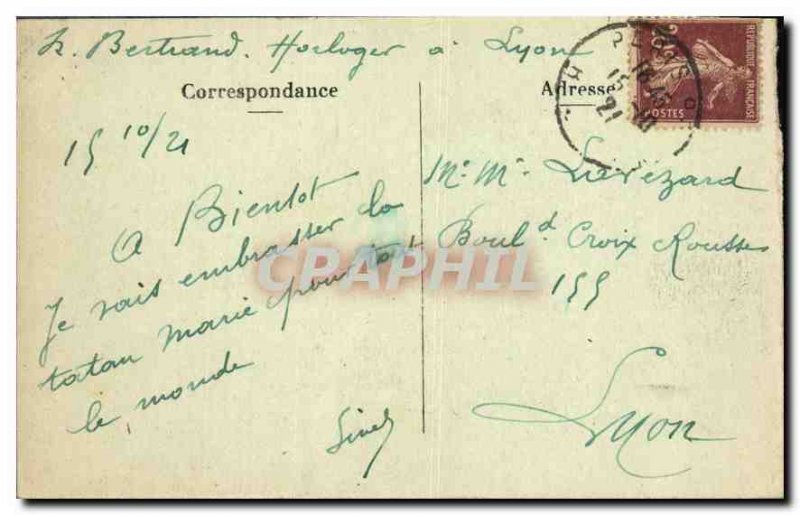 h. Bertrand. Horloger a Lyon
Correspondance
Adresse
REPUBLIQUE FRANÇAISE
POSTES
15 10/21
A Bientot
Je vais embrasser la
tatan marie pour tout
le monde
Mr Me
Boul d Croix Rousse
155
Lyon
CPAPHIL